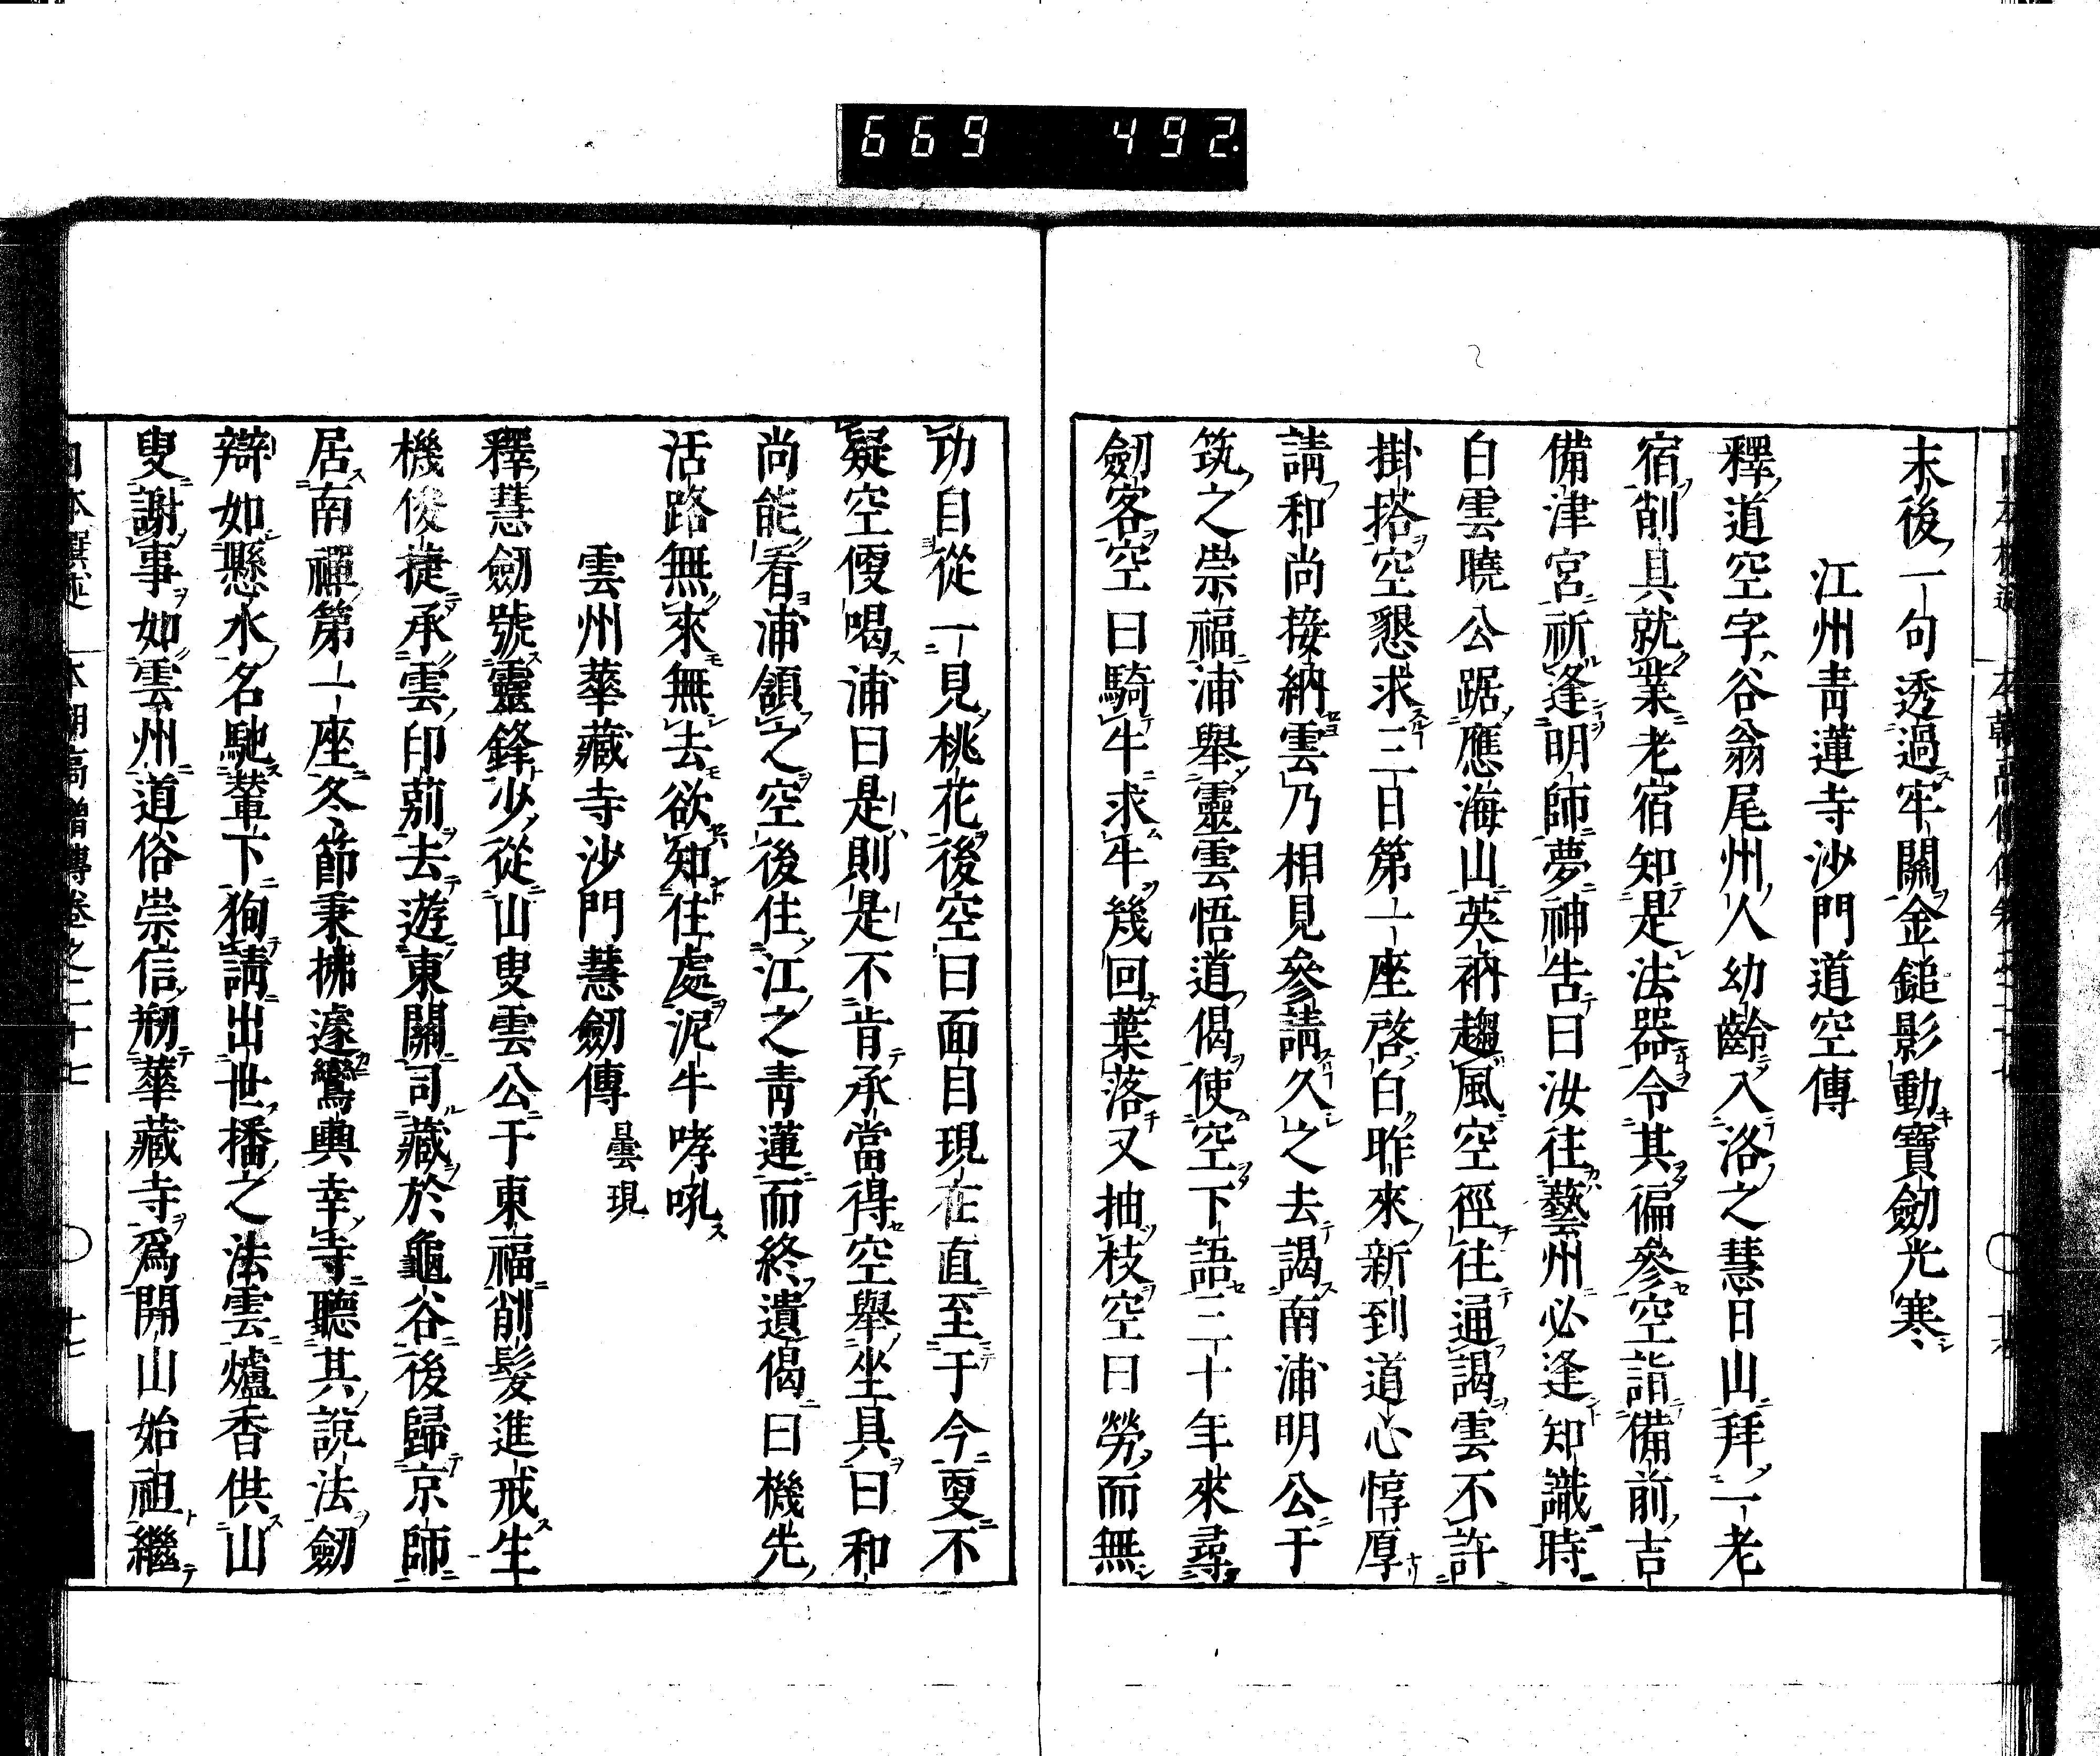 669 492.
末後一句透過牢關金鎚影動寶劒光寒
江州靑蓮寺沙門道空傳
釋道空字谷翁尾州人幼齡入洛之慧日山拜一老
宿削具就業老宿知是法器令其徧參空詣備前吉
備津宮祈逢明師夢神吿曰汝往藝州必逢知識時
白雲曉公踞應海山英衲趨風空徑往通謁雲不許
掛搭空懇求三日第一座啓白昨來新到道心惇厚
請和尚接納雲乃相見參請久之去謁南浦明公于
筑之崇福浦舉靈雲悟道偈使空下語三十年來尋
劒客空曰騎牛求牛幾回葉落又抽枝空曰勞而無
功自從一見桃花後空曰面目現在直至于今更不
疑空便喝浦曰是則是不肯承當得空舉坐具曰和
尚能看浦頷之空後住江之靑蓮而終遺偈曰機先
活路無來無去欲知住處泥牛哮吼
雲州華藏寺沙門慧劒傳 曇現
釋慧劒號靈鋒少從山叟雲公于東福削髮進戒生
機俊捷承雲印莂去遊東關司藏於龜谷後歸京師
居南禪第一座冬節秉拂遽鸞輿幸寺聽其說法劒
辯如懸水名馳輦下徇請出世播之法雲爐香供山
叟謝事如雲州道俗崇信剏華藏寺爲開山始祖繼
日本撰述 本朝高僧傳卷之二十七 十七